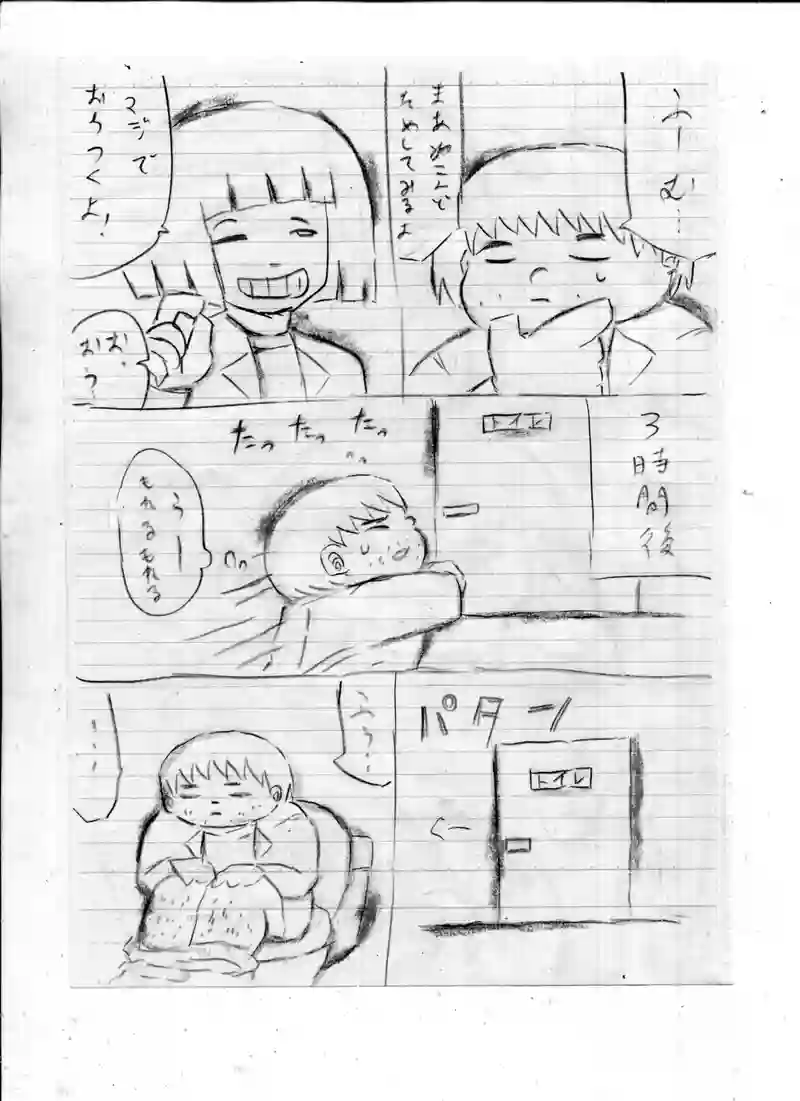 ふーむ…
まあめんど
ためしてみるよ
マジで
おちつくよ！
お、
おう？
3時間後
トイレ
たっ
たっ
たっ
うー
もれるもれる
パターン
トイレ
ふう…
……